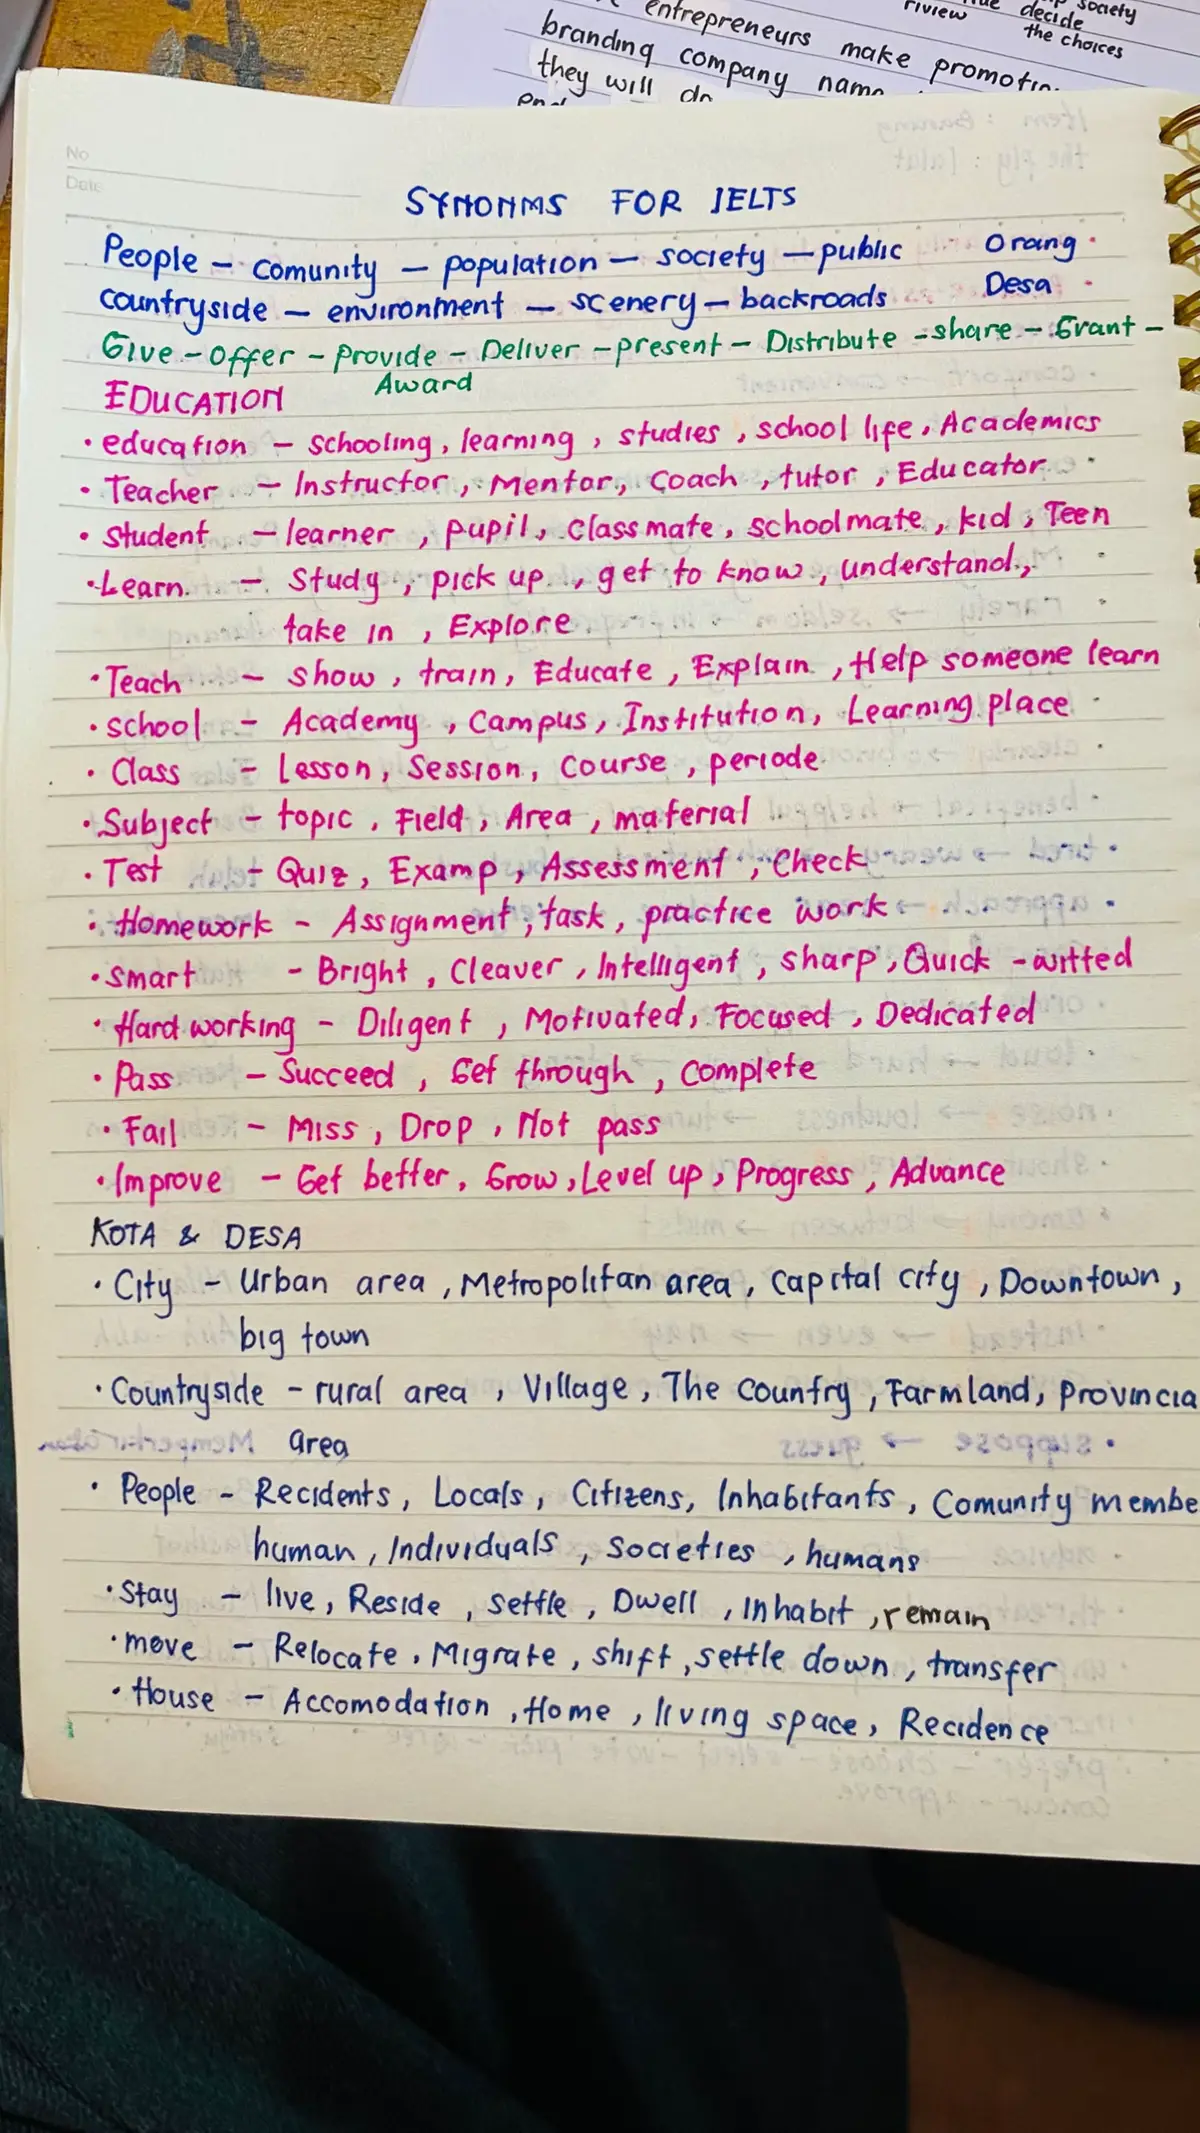 society
riview
decide
the choices
entrepreneurs make
branding company name
they will do
No
Date
SYNONMS FOR IELTS
People - comunity - population - society - public Orang
countryside - environment - scenery - backroads Desa
Give - Offer - provide - Deliver - present - Distribute - share - Grant -
Award
EDUCATION
• education - schooling, learning, studies, school life, Academics
• Teacher - Instructor, Mentor, Coach, tutor, Educator
• student - learner, pupil, classmate, schoolmate, kid, Teen
• Learn - Study, pick up, get to know, understand,
take in, Explore
• Teach - show, train, Educate, Explain, Help someone learn
• school - Academy, Campus, Institution, Learning place
• Class - Lesson, Session, Course, periode
• Subject - topic, Field, Area, material
• Test - Quiz, Examp, Assessment, Check
• Homework - Assignment, task, practice work
• smart - Bright, Cleaver, Intelligent, sharp, Quick-witted
• Hard working - Diligent, Motivated, Focused, Dedicated
• Pass - Succeed, Get through, Complete
• Fail - Miss, Drop, Not pass
• Improve - Get better, Grow, Level up, Progress, Advance
KOTA & DESA
• City - Urban area, Metropolitan area, capital city, Downtown,
big town
• Countryside - rural area, Village, The country, Farmland, Provincia
area
• People - Recidents, Locals, Citizens, Inhabitants, Comunity membe
human, Individuals, Societies, humans
• Stay - live, Reside, settle, Dwell, Inhabit, remain
• move - Relocate, Migrate, shift, settle down, transfer
• House - Accomodation, Home, living space, Recidence